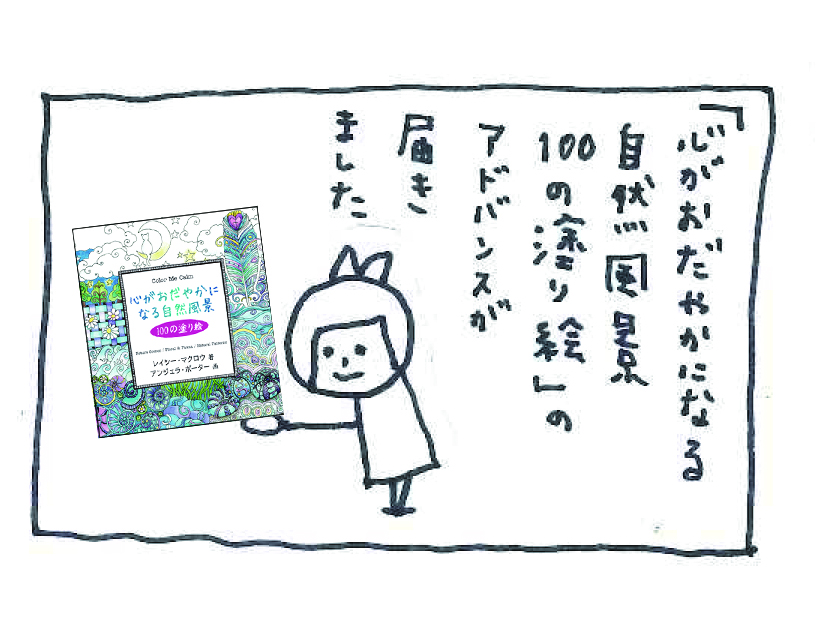 「心がおだやかになる
自然風景
100の塗り絵」の
アドバンスが
届き
ました
Color Me Calm
心がおだやかに
なる自然風景
100の塗り絵
レイシー・マクロウ 著
アンジェラ・ポーター 画